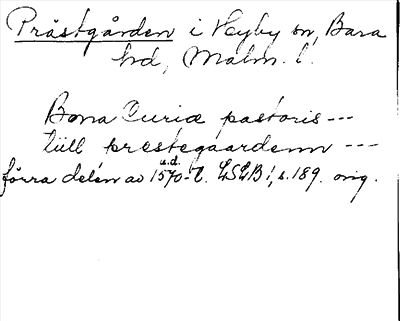 Prästgården i Hyby sn, Bara
hd, Malm. l.
Bona Curiæ pastoris ---
tüll prestegaardenn ---
u.d.
förra delen av 1570-t. LSLB 1, s. 189. orig.